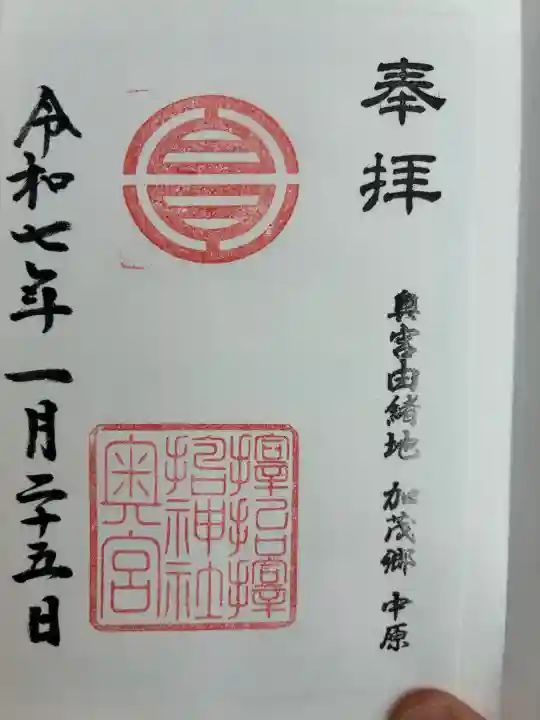 奉拝
奥宮由緒地 加茂郷 中原
擇招擇
招神社
奥宮
令和七年 一月二十五日